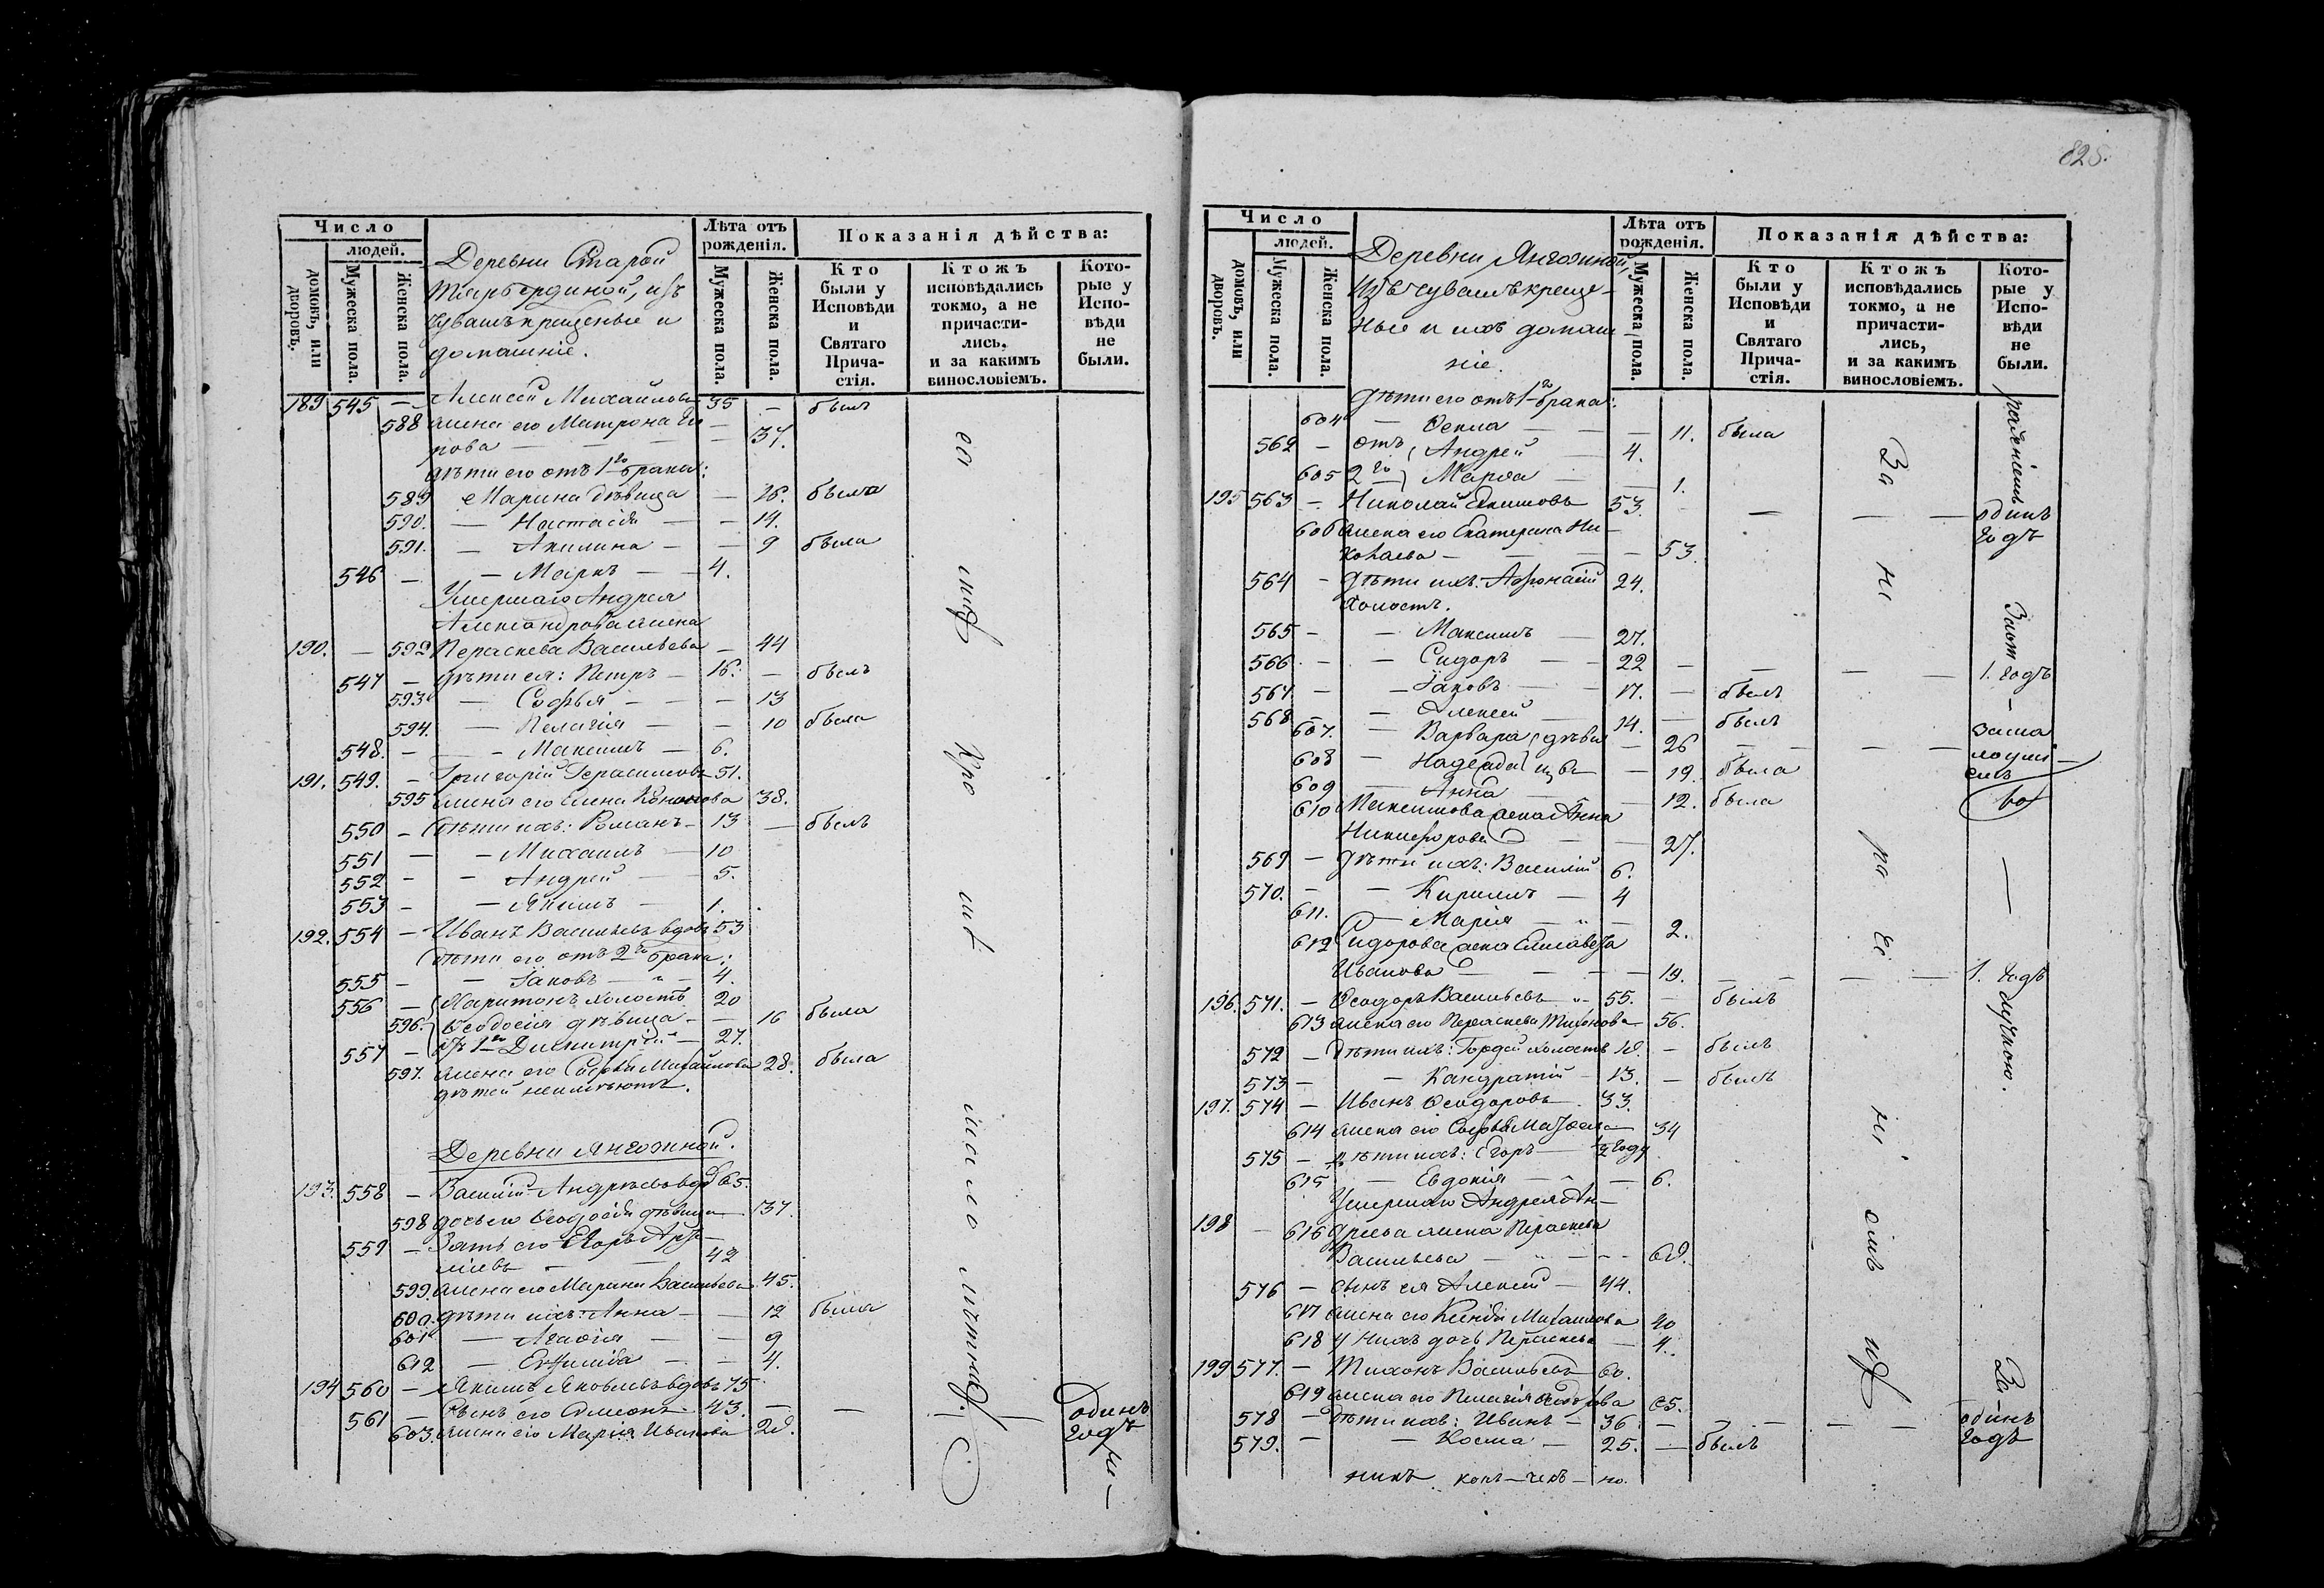 Число
людей.
домовъ, или дворовъ.
Мужеска пола.
Женска пола.
Деревни Старой
изъ
чувашъ крещеные и
домашніе.
Лѣта отъ рожденія.
Мужеска пола.
Женска пола.
Показанія дѣйства:
Кто были у Исповѣди и Святаго Прича-стія.
Ктожъ исповѣдались токмо, а не причасти-лись, и за какимъ винословіемъ.
Кото-рые у Испо-вѣди не были.
189 545 — Алексей Михайловъ 35 — былъ
588 жена его Матрона
— 37.
дѣти его отъ 1го брака:
589 Марина дѣвица — 16. была
590. — Настасія — — 14.
591. — Акилина — — 9 была
546 — — Маркъ — — 4.
Умершаго Андрея
Александрова жена
190. — 592 Параскева Васильева — 44
547 — дѣти ея: Петръ — 16. — былъ
593 — Софья — — — 13
594. — Пелагія — — 10 была
548. — — Максимъ — 6.
191. 549. — Григорій Герасимовъ 51.
595 жена его Елена Кононова 38.
550 — дѣти ихъ: Романъ — 13 — былъ
551 — — Михаилъ — 10
552 — — Андрей — 5.
553 — — Якимъ — 1.
192. 554 — Иванъ Васильевъ вдовъ 53
дѣти его отъ 2го брака:
555 — — Іаковъ — 4.
556 — Харитонъ холостъ 20
596. Ѳеодосія дѣвица — — 16 была
557 — 1го Димитрій — 27.
597. жена его Софья Михайлова 28. была
дѣтей неимѣютъ.
Деревни Янгозиной.
193. 558 — Василій Андреевъ вдовъ 65.
598 дочь его Ѳеодосія дѣвица — 37.
559 — Зять его Егоръ
— 42
599. жена его Марина Васильева 45.
600. дѣти ихъ: Анна — — 12 была
601 — Агафія — — 9
612 — Евфимія — — 4.
194 560 — Якимъ Яковлевъ вдовъ 75
561 — Сынъ его Симеонъ — 43. — — одинъ годъ
603. жена его Марія Иванова 28.
825.
Число
людей.
домовъ, или дворовъ.
Мужеска пола.
Женска пола.
Деревни Янгозиной,
Изъ чувашъ креще-
ные и ихъ домаш
ніе.
Лѣта отъ рожденія.
Мужеска пола.
Женска пола.
Показанія дѣйства:
Кто были у Исповѣди и Святаго Прича-стія.
Ктожъ исповѣдались токмо, а не причасти-лись, и за какимъ винословіемъ.
Кото-рые у Испо-вѣди не были.
дѣти его отъ 1го брака:
604 — Ѳекла — — — 11. была
562 — отъ Андрей — 4.
605 2го Марѳа — — 1.
195 563 — Николай Якимовъ 53. — — — одинъ годъ
606 жена его Екатерина Ни-
колаева — — — 53.
564 — дѣти ихъ: Афонасій 24.
холостъ.
565 — — Максимъ — 27.
566 — — Сидоръ — — 22 — — — — 1. годъ
567. — — Іаковъ — — 17. — былъ
568 — Алексей — 14. — былъ
607. — Варвара дѣви — 26 — — — —
608 — Надежда цы — 19. была
609 — Анна — — 12. была
610 Максимова жена Анна
Никифорова — — 27.
569 — дѣти ихъ: Василій 6.
570. — — Кирилъ — 4
611. — Марія — — 2.
612 Сидорова жена Елисавета
Иванова — — — 19. — — — — 1. годъ
196. 571. — Ѳеодоръ Васильевъ — 55. — былъ
613 жена его Параскева Тихонова — 56.
572 — дѣти ихъ: Гордей холостъ 18. — былъ
573 — — Кандратій — 13. — былъ
197. 574 — Иванъ Ѳеодоровъ — 33.
614 жена его Софья — 34
575 — дѣти ихъ: Егоръ — ½ году
615 — Евдокія — — 6.
Умершаго Андрея Ан-
198 — 616 дреева жена Параскева
Васильева — — — 68.
576 — сынъ ея Алексей — 44.
617 жена его Михайлова 40
618 у нихъ дочь Параскева — 4.
199 577. — Тихонъ Васильевъ 60.
619 жена его Пелагія 65.
578 — дѣти ихъ: Иванъ — 36 — — — — — одинъ годъ
579. — — Косма — 25. — былъ